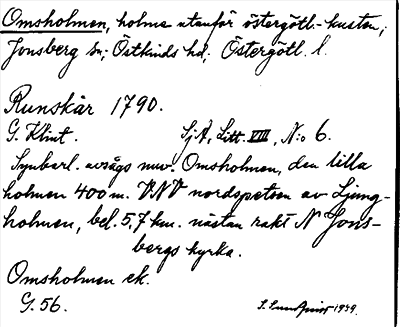 Omsholmen, holme utanför östergötl.-kusten;
Jonsberg sn; Östkinds hd; Östergötl. l.
Runskär 1790.
G. Klint. SjA, Litt. VIII, N:o 6.
Synbarl. avsågs nuv. Omsholmen, den lilla
holmen 400 m. VNV nordspetsen av Ljung-
holmen, bel. 5,7 km. nästan rakt N Jons-
bergs kyrka.
Omsholmen ek.
G. 56. S. Lundqvist 1949.